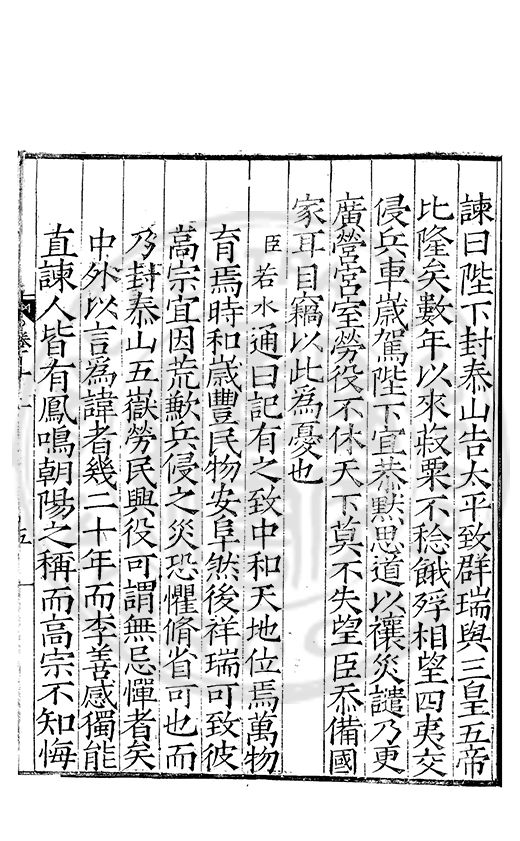 諫曰陛下封泰山告太平致群瑞與三皇五帝
比隆矣數年以來菽粟不稔餓殍相望四夷交
侵兵車嵗駕陛下宜恭默思道以禳災譴乃更
廣營宮室勞役不休天下莫不失望臣忝備國
家耳目竊以此爲憂也
臣若水通曰記有之致中和天地位焉萬物
育焉時和嵗豐民物安阜然後祥瑞可致彼
髙宗宜因荒歉兵侵之災恐懼脩省可也而
乃封泰山五嶽勞民興役可謂無忌憚者矣
中外以言爲諱者幾二十年而李善感獨能
直諫人皆有鳳鳴朝陽之稱而高宗不知悔